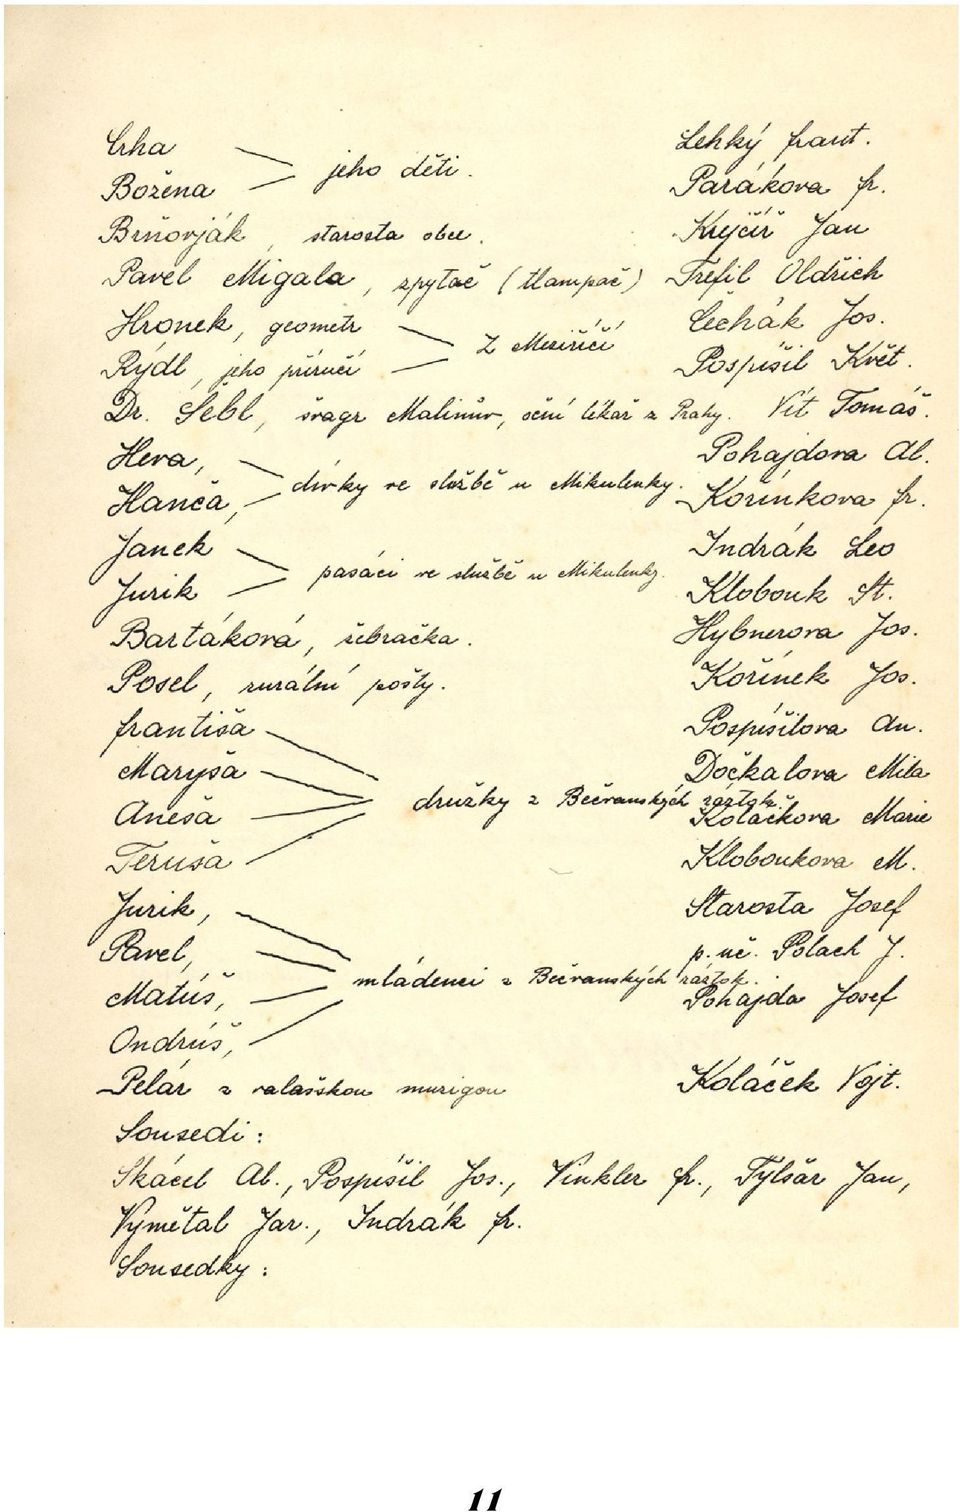 Crha jeho děti. Lehký Frant.
Božena Parákova Fr.
Brňovják, starosta obce. Krejčíř Jan
Pavel Migala, zpytač (tlampač) Trefil Oldřich
Hronek, geometr Z Meziříčí Čechák Jos.
Rýdl, jeho příručí Pospíšil Květ.
Dr. Šébl, švagr Malinův, oční lékař z Prahy. Vít Tomáš.
Heva, dívky ve službě u Mikulenky. Pohajdova Al.
Hanča, Kořínkova Fr.
Janek pasáci ve službě u Mikulenky. Indrák Leo
Jurik Klobouk St.
Bartáková, žebračka. Hybnerova Jos.
Posel, rurální pošty. Kořínek Jos.
Františa Pospíšilova An.
Maryša Dočkalova Mila
Aneša družky z Bečvanských ráztok. Koláčkova Marie
Teruša Kloboukova M.
Jurik, Starosta Josef
Pavel, p. uč. Polach J.
Matúš, mládenci z Bečvanských ráztok. Pohajda Josef
Ondrúš,
Pelár z valašskou muzigou Koláček Vojt.
Sousedi:
Skácel Al., Pospíšil Jos., Vinkler Fr., Tylšar Jan,
Vymětal Jar., Indrák Fr.
Sousedky:
11